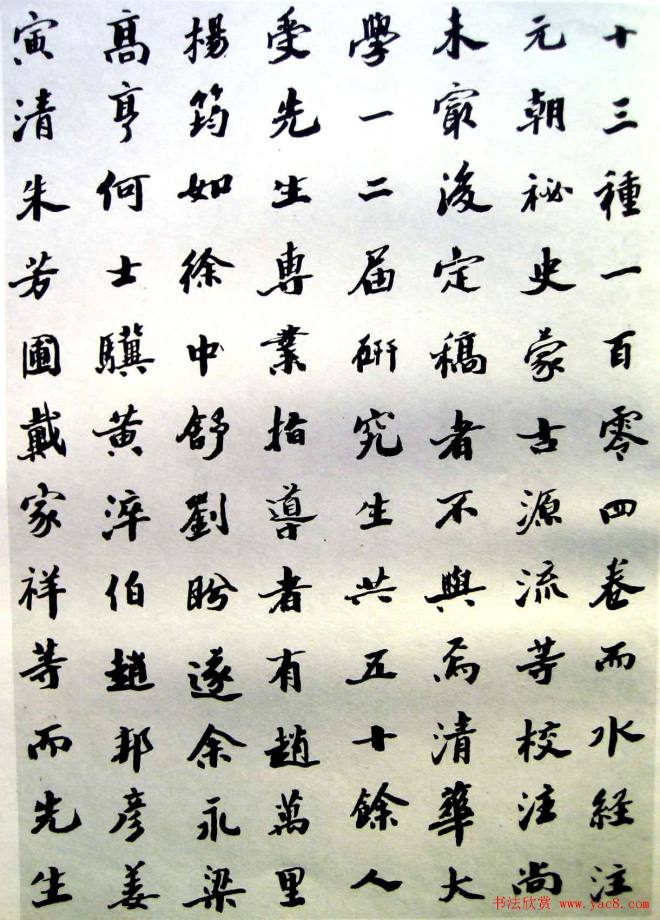 十三種一百零四卷而水経注
元朝祕史蒙古源流等校注尚
未㝡後定稿者不與焉清華大
學一二届研究生共五十餘人
受先生專業指導者有趙萬里
楊筠如徐中舒劉盼遂余永梁
高亨何士驥黄淬伯趙邦彦姜
寅清朱芳圃戴家祥等而先生
书法欣赏 www.yac8.com